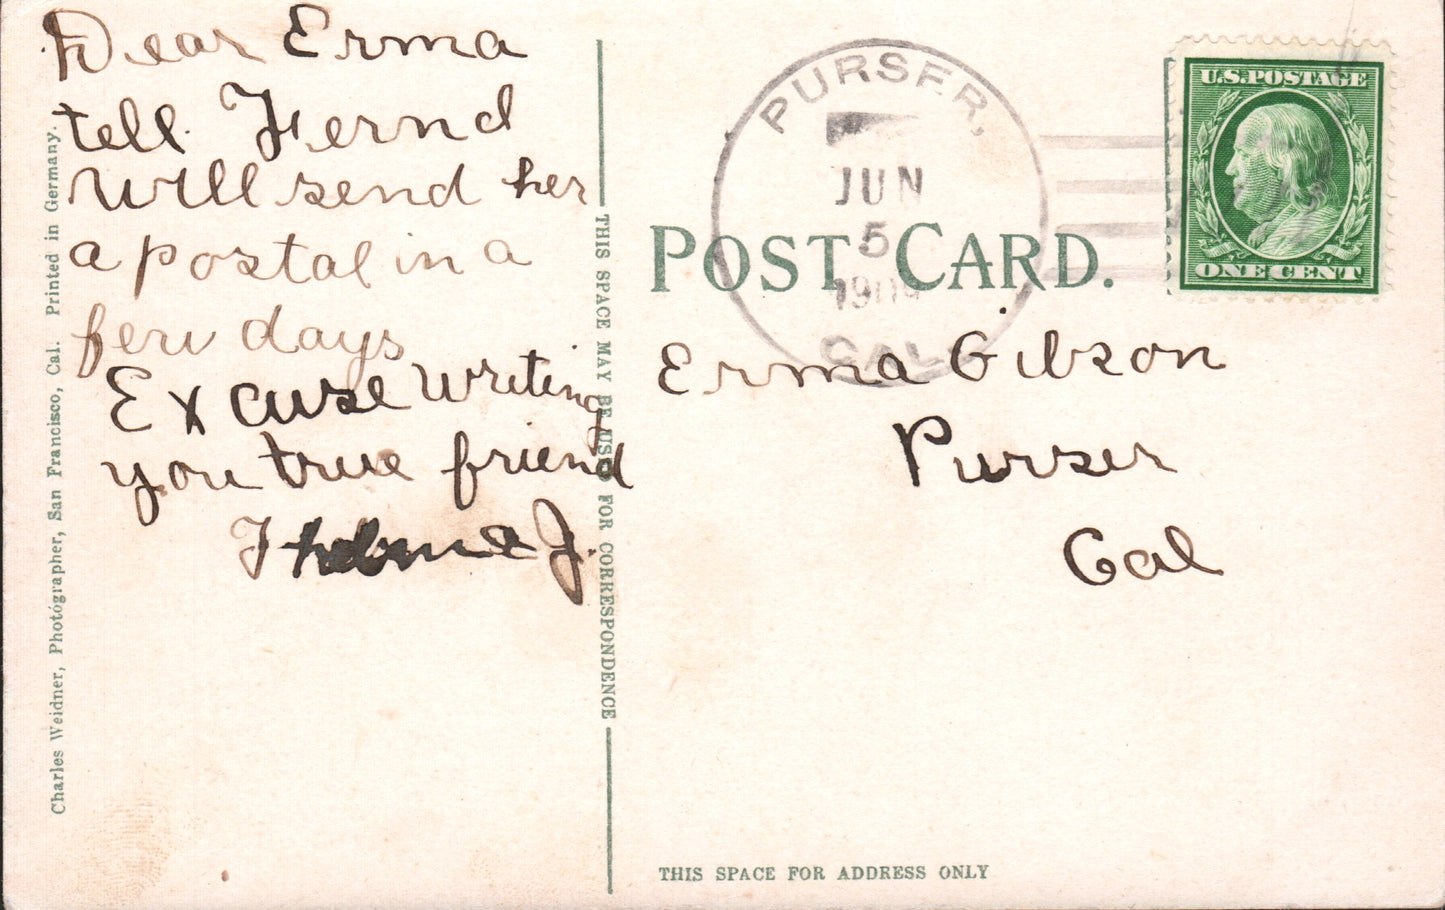 Dear Erma
tell Fernd
will send her
a postal in a
few days
Excuse writing
you true friend
Thelma J.
Charles Weidner, Photographer, San Francisco, Cal. Printed in Germany.
THIS SPACE MAY BE USED FOR CORRESPONDENCE
PURSER,
JUN
5
1909
CAL.
U.S. POSTAGE
ONE CENT
POST CARD.
Erma Gibson
Purser
Cal
THIS SPACE FOR ADDRESS ONLY